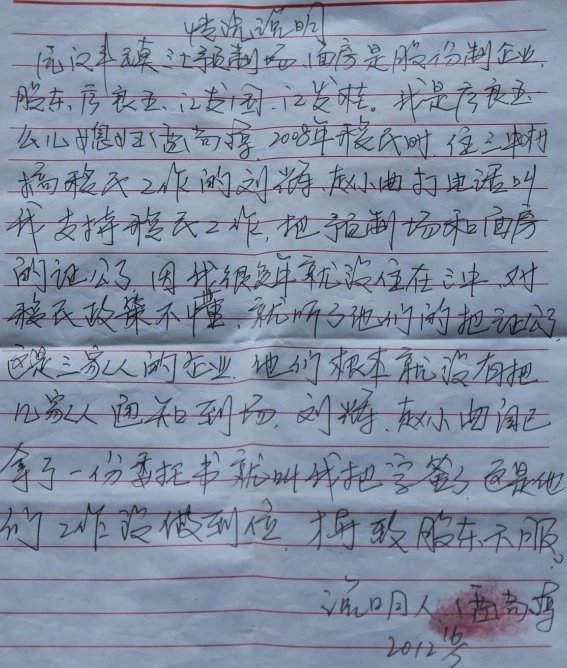 情况说明
镇江预制场、面房是股份制企业,
股东:彦良玉、江发国、江发旺。我是彦良玉
么儿媳妇 2008年移民时,住三
搞移民工作的刘辉、赵小曲打电话叫
我支持移民工作,把预制场和面房
的证公了,因我很多年就没住在三,对
移民政策不懂,就听了他们的把证公了,
这是三家人的企业,他们根本就没有把
几家人通知到场,刘辉、赵小曲自己
拿了一份委托书就叫我把字签了,这是他
们工作没做到位,才导致股东不服。
说明人:
2012